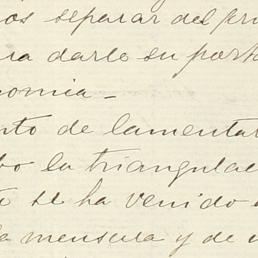 os separar del pri
ra darle su porta
nomia-
nto de lamentar
bo la triangulac
to se ha venido
la mensura y de